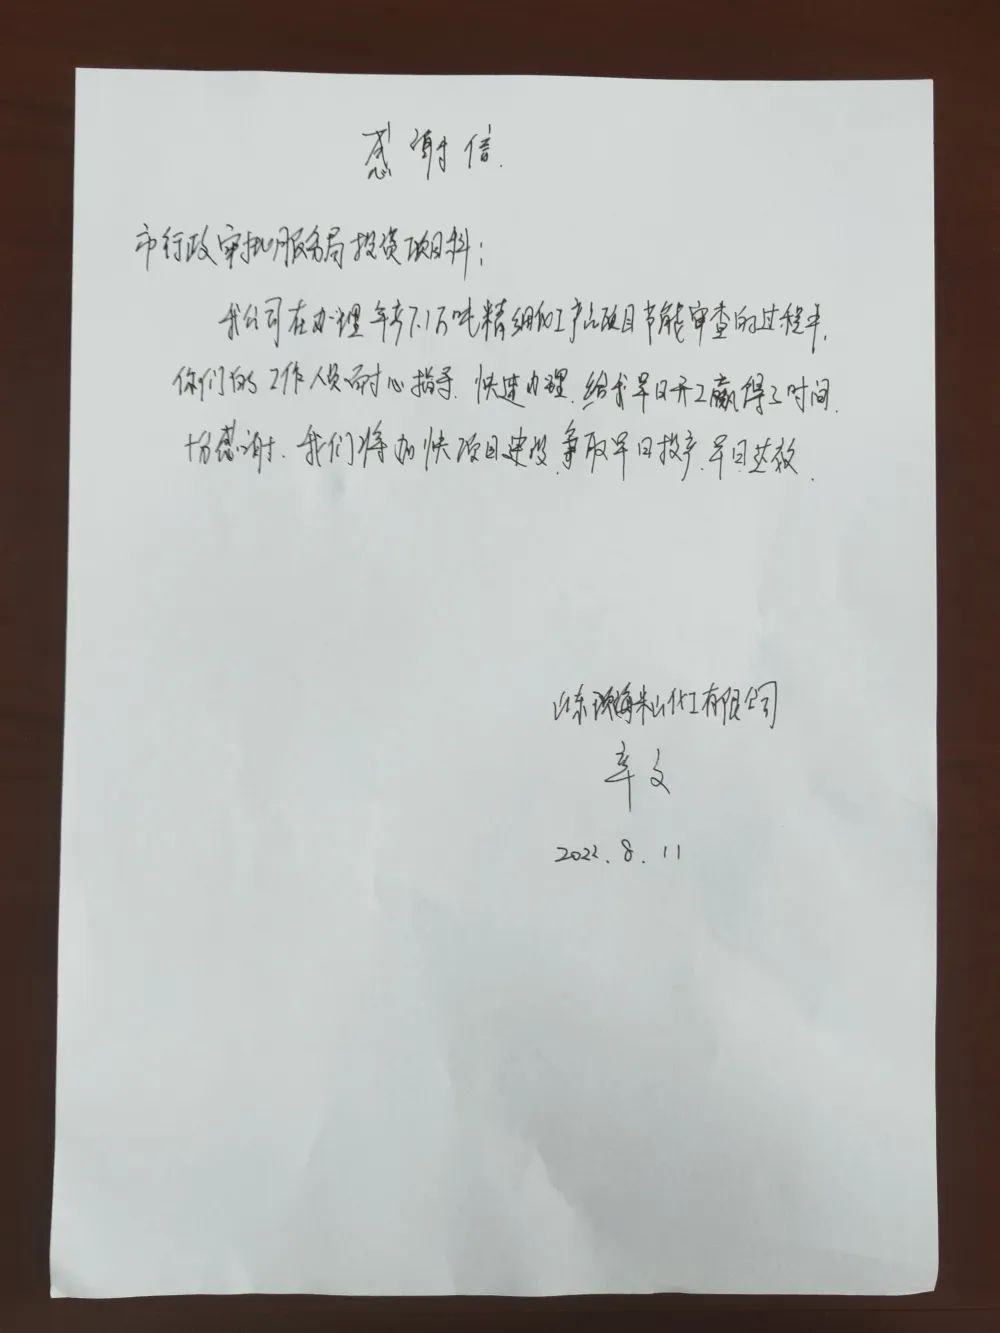 感谢信.
市行政审批服务局投资项目科:
我公司在办理年产7.1万吨精细化工产品项目节能审查的过程中,
你们的工作人员耐心指导、快速办理、给我早日开工赢得了时间.
十分感谢、我们将加快项目建设、争取早日投产、早日达效.
山东滨海米山化工有限公司
辛文
2022.8.11